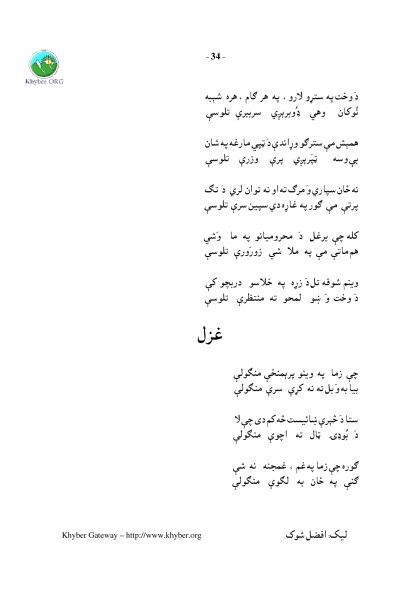 - 34 -
Khyber.ORG
دَ وخت په سترو لارو ، په هر ګام ، هره شېبه
ټُوکان وهي ډُوبرېږي سرېږي تلوسې
همېش مې سترګو وړاندې دَ ټپي مارغه په شان
بې وسه ټپرېږي پرې وزرې تلوسې
نه ځان سپاري وَ مرګ ته او نه توان لري دَ تګ
پرتې مې ګور په غاړه دي سپين سرې تلوسې
کله چې يرغل دَ محروميانو په ما وَشي
هم ماتې مې په ملا شي زورَورې تلوسې
وينم شوقه تل دَ زړه په خلاسو دربچو کې
دَ وخت وَ ښو لمحو ته منتظرې تلوسې
غزل
چې زما په وينو پرېمنځې منګولې
بيا به وَ بل ته نه کړې سرې منګولې
ستا دَ څېرې ښائيست څه کم دی چې لا
دَ بُوډۍ ټال ته اچوې منګولې
ګوره چې زما په غم ، غمجنه نه شې
ګنې په ځان به لګوې منګولې
Khyber Gateway – http://www.khyber.org
ليک: افضل شوک